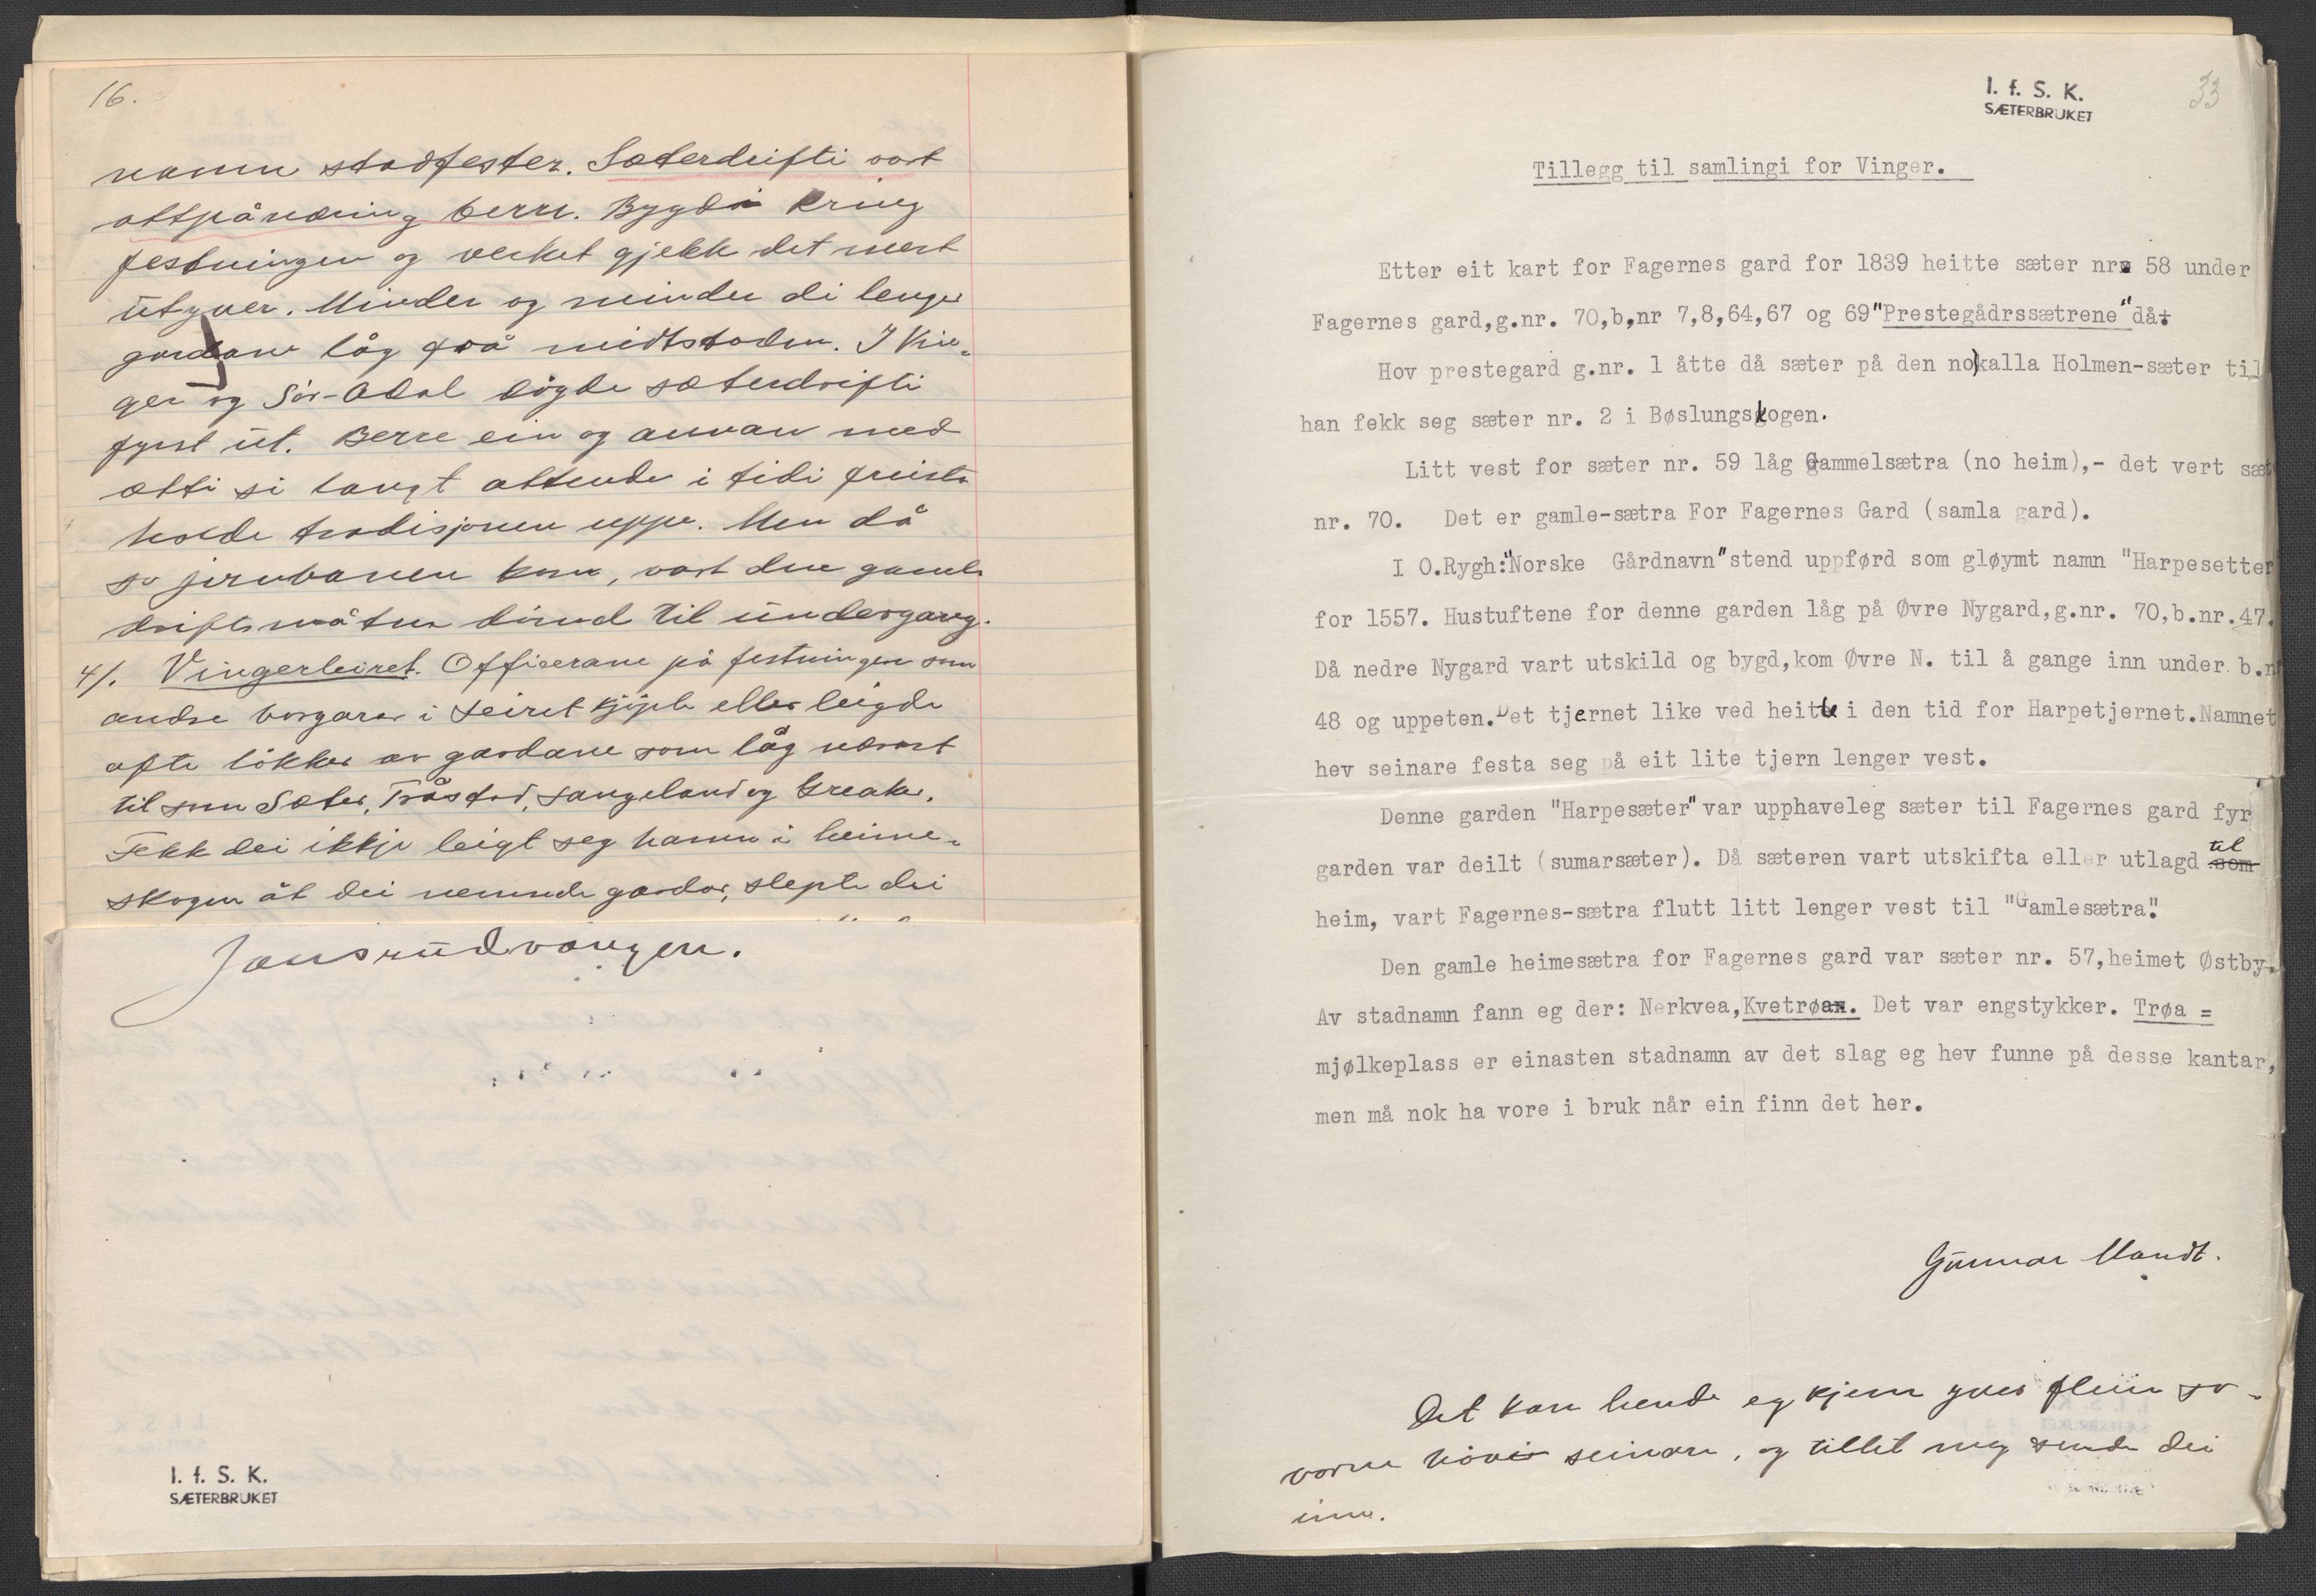 16.
namn stadfester. Sæterdrifti vart
attpånæring berre. Bygdi kring
festningen og verket gjekk det mest
utyver. Minder og minder di lenger
gardane låg frå midtstaden. I Vin-
ger og Sør-Odal døgde sæterdrifti
fyrst ut. Berre ein og annan med
ætti si langt attende i tidi freista
halde tradisjonen uppe. Men då
so jernbanen kom, vart den gamle
driftsmåten dømd til undergang.
4/. Vingerleiret. Offiserane på festningen som
andre borgarar i Leiret kjøpte eller leigde
ofte løkker av gardane som låg nærast
til som Sæter, Tråstad, Langeland og Greaker.
Fekk dei ikkje leigt seg hamn i heime-
skogen åt dei nemnde gardar, slepte dei
Jansrudvangen.
I. f. S. K.
SÆTERBRUKET
I. f. S. K.
SÆTERBRUKET
33
Tillegg til samlingi for Vinger.
Etter eit kart for Fagernes gard for 1839 heitte sæter nr. 58 under
Fagernes gard,g.nr. 70,b,nr 7,8,64,67 og 69 "Prestegådrssætrene" då.
Hov prestegard g.nr. 1 åtte då sæter på den no kalla Holmen-sæter til
han fekk seg sæter nr. 2 i Bøslungskogen.
Litt vest for sæter nr. 59 låg Gammelsætra (no heim),- det vert sæt
nr. 70. Det er gamle-sætra For Fagernes Gard (samla gard).
I O.Rygh:"Norske Gårdnavn" stend uppførd som gløymt namn "Harpesetter
for 1557. Hustuftene for denne garden låg på Øvre Nygard,g.nr. 70,b.nr.47.
Då nedre Nygard vart utskild og bygd,kom Øvre N. til å gange inn under b.n
48 og uppeten. Det tjernet like ved heitte i den tid for Harpetjernet.Namnet
hev seinare festa seg på eit lite tjern lenger vest.
Denne garden "Harpesæter" var upphaveleg sæter til Fagernes gard fyr
garden var deilt (sumarsæter). Då sæteren vart utskifta eller utlagd som til
heim, vart Fagernes-sætra flutt litt lenger vest til "Gamlesætra".
Den gamle heimesætra for Fagernes gard var sæter nr. 57,heimet Østby.
Av stadnamn fann eg der: Nerkvea,Kvetrøan. Det var engstykker. Trøa =
mjølkeplass er einasten stadnamn av det slag eg hev funne på desse kantar,
men må nok ha vore i bruk når ein finn det her.
Gunnar Mandt.
Det kan hende eg kjem yver fleir so-
vorne høve seinare, og tillet meg sende dei
inn.